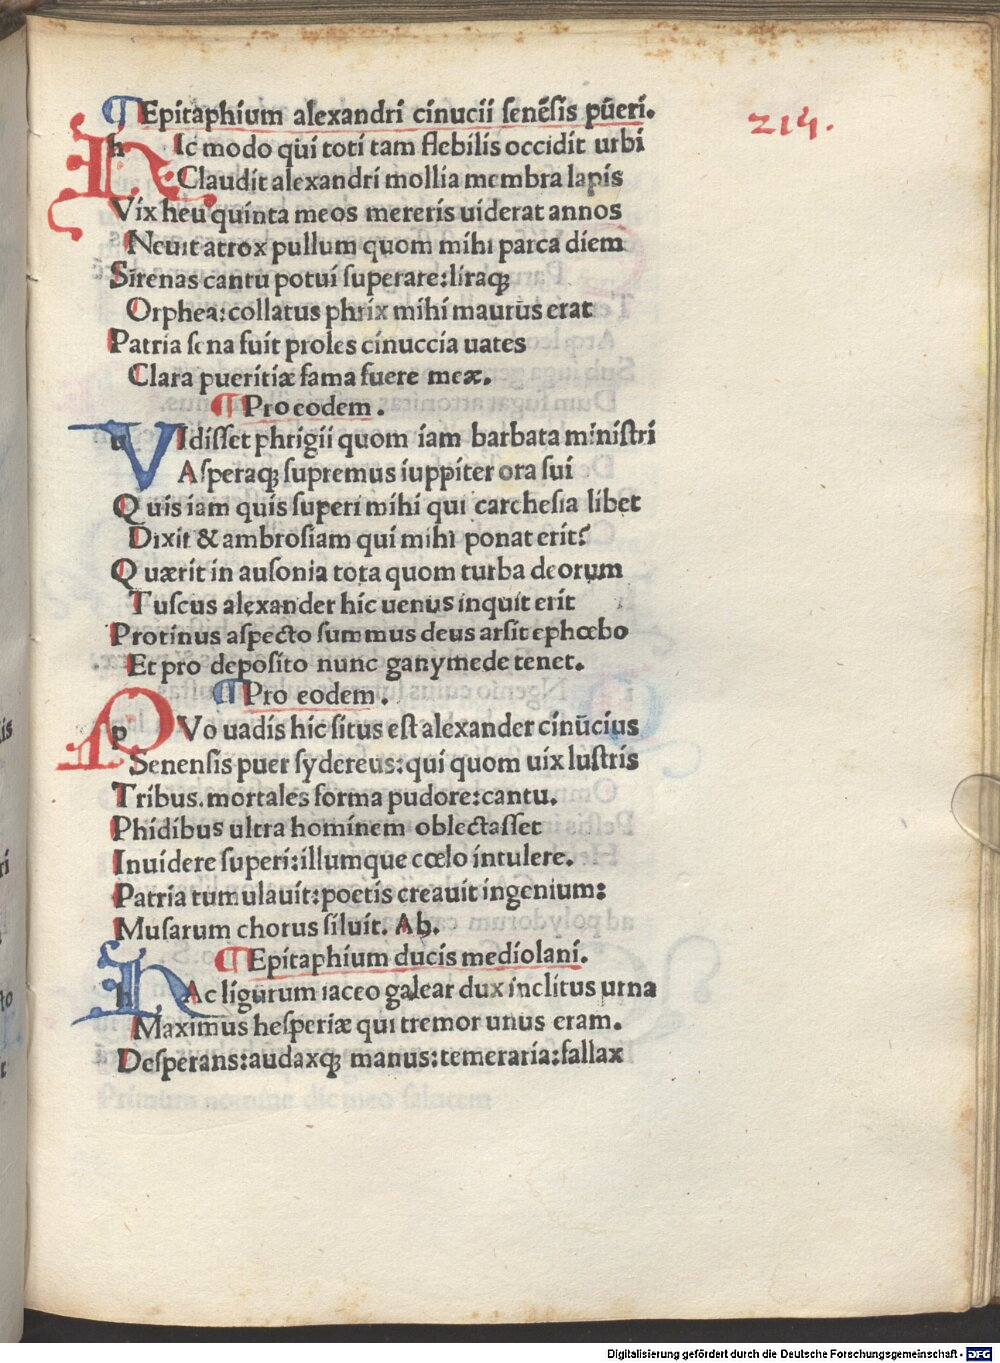 ¶Epitaphium alexandri cinucii ſenēſis pūeri.
214.
hIc modo qui toti tam flebilis occidit urbi
Claudit alexandri mollia membra lapis
Vix heu quinta meos mereris uiderat annos
Neuit atrox pullum quom mihi parca diem
Sirenas cantu potui ſuperare:liraqꝫ
Orphea:collatus phrix mihi maurus erat
Patria ſena fuit proles cinuccia uates
Clara pueritiæ fama fuere meæ.
¶Pro eodem.
uIdiſſet phrigii quom iam barbata miniſtri
Aſperaqꝫ ſupremus iuppiter ora ſui
Quis iam quis ſuperi mihi qui carcheſia libet
Dixit & ambroſiam qui mihi ponat erit?
Quærit in auſonia tota quom turba deorum
Tuſcus alexander hic uenus inquit erit
Protinus aſpecto ſummus deus arſit ephœbo
Et pro depoſito nunc ganymede tenet.
¶Pro eodem.
pVo uadis hic ſitus eſt alexander cinūcius
Senenſis puer ſydereus:qui quom uix luſtris
Tribus.mortales forma pudore:cantu.
Phidibus ultra hominem oblectaſſet
Inuidere ſuperi:illumque cœlo intulere.
Patria tumulauit:poetis creauit ingenium:
Muſarum chorus ſiluit. Ab.
¶Epitaphium ducis mediolani.
hAc ligurum iaceo galear dux inclitus urna
Maximus heſperiæ qui tremor unus eram.
Deſperans:audaxqꝫ manus:temeraria:fallax
Digitalisierung gefördert durch die Deutsche Forschungsgemeinschaft - DFG